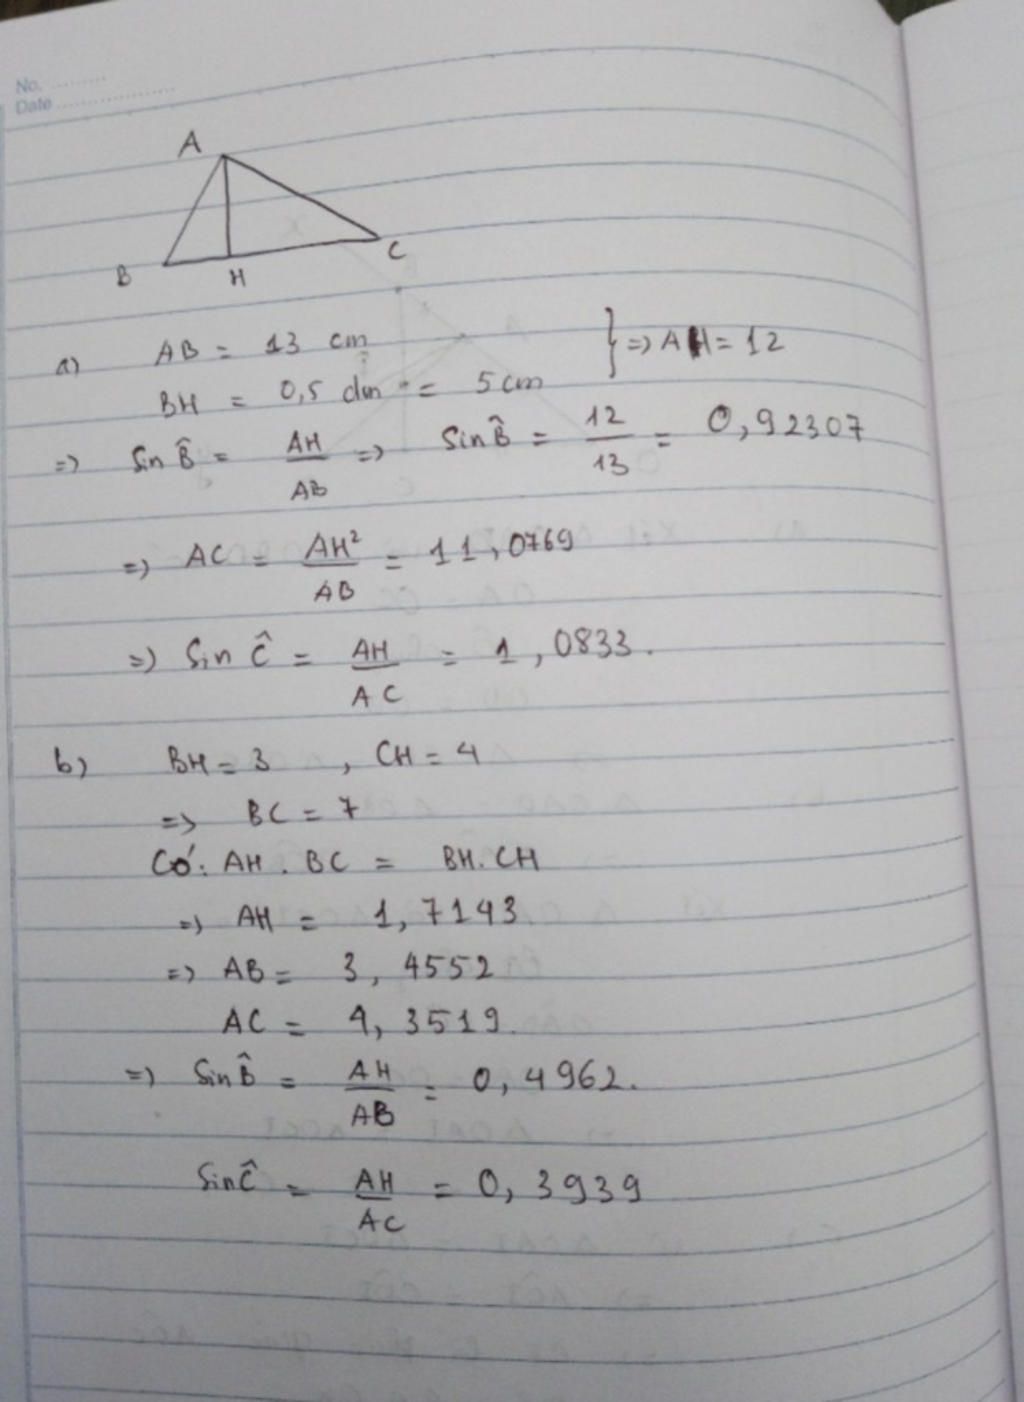 No. ..........
Date ....................
A
B
H
C
a) AB = 13 cm
BH = 0,5 dm = 5 cm } => AH = 12
=> Sin B̂ = AH/AB => Sin B̂ = 12/13 = 0,92307
=> AC = AH²/AB = 11,0769
=> Sin Ĉ = AH/AC = 1,0833.
b) BH = 3 , CH = 4
=> BC = 7
Có: AH . BC = BH.CH
=> AH = 1,7143
=> AB = 3,4552
AC = 4,3519.
=> Sin B̂ = AH/AB = 0,4962.
Sin Ĉ = AH/AC = 0,3939